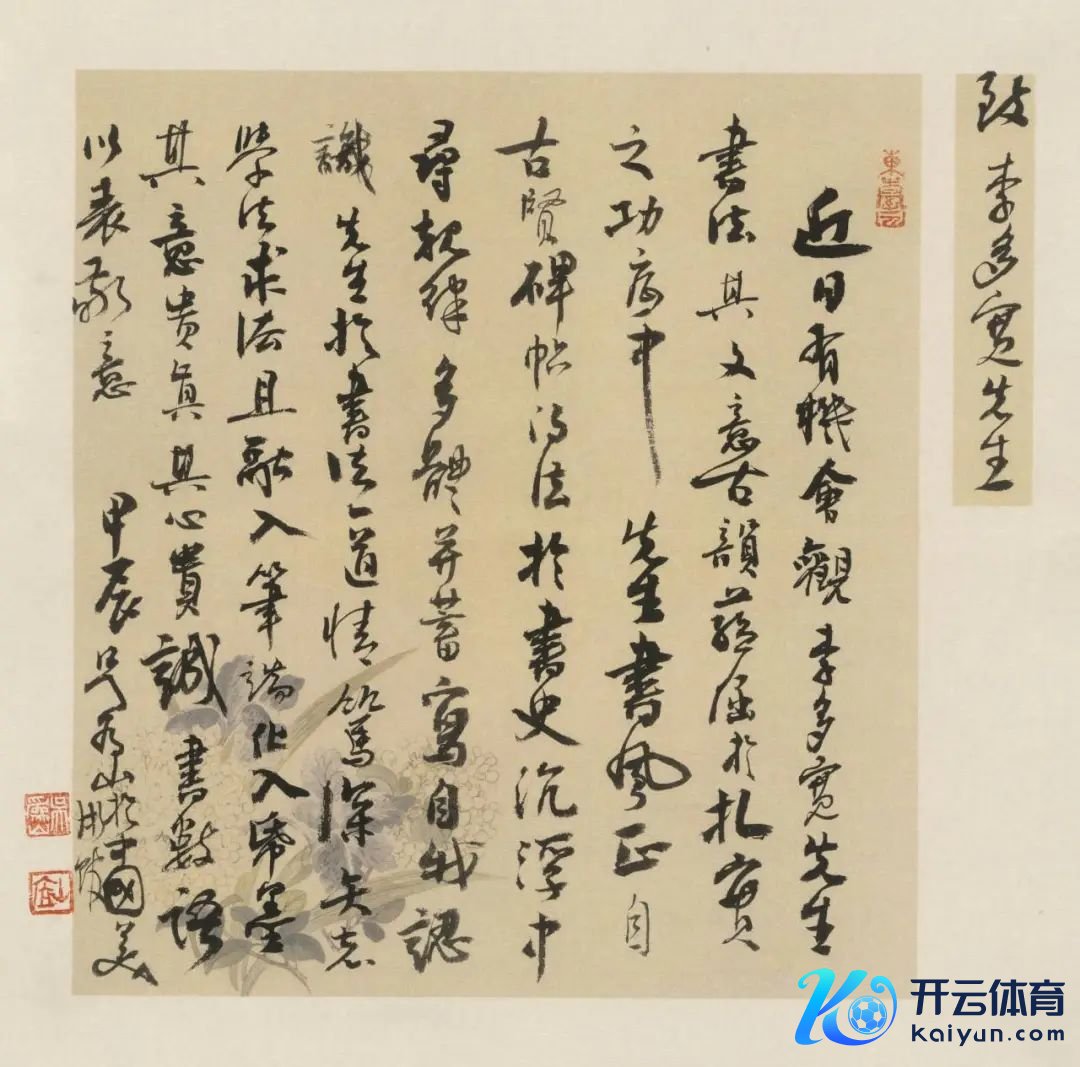 致 李多寬先生
近日有機會觀 李多寬先生
書法其文意古韻蘊涵於扎實
之功底中 先生書風正自
古賢碑帖得法於書史沉浮中
尋規律多體并蓄寫自我認
識 先生於書法一道情篤深矣
學法求法且融入筆端化入紙墨
其意贵真其心貴誠 書數語
以表敬意 甲辰 山於中國美
开云体育
kaiyun.com